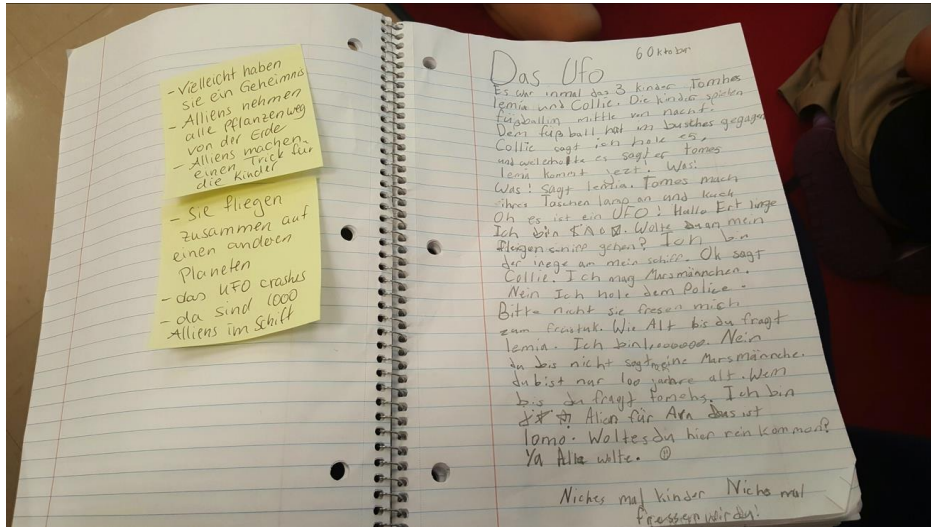 - Vielleicht haben
sie ein Geheimnis
- Alliens nehmen
alle Pflanzen weg
von der Erde
- Alliens machen
einen Trick für
die Kinder
- Sie fliegen
zusammen auf
einen anderen
Planeten
- das UFO crashes
- da sind 1000
Alliens im Schift
6 Oktober
Das Ufo
Es war inmal das 3 kinder Tomhes
lemia und Collie. Die kinder spielen
fußball in mittle von nacht!
Dem fußball hat im busches gegagen
Collie sagt ich hole es.
und weler holte es sagt er tomes
lemia kommt jezt. Was!
Was! sagt lemia. Tomes mach
ihres Taschen lang an und kuch
Oh es ist ein UFO! Hallo Ert
Ich bin Wolte an mein
fliegen gehen? Ich bin
der am mein schiff. Ok sagt
Collie. Ich mag Marsmännchen.
Nein Ich hole dem Police.
Bitte nicht sie fresen mich
zum frastuk. Wie Alt bis du fragt
lemia. Ich bin Nein
du bis nicht sagt eine Marsmännche.
du bist nur 100 jahre alt. Wem
bis du fragt tomehs. Ich bin
Alien für Ara das ist
lomo. Woltes du hier rein kommen?
Ya Alle wolte.
Niches mal kinder Niche mal
fressen wir du!